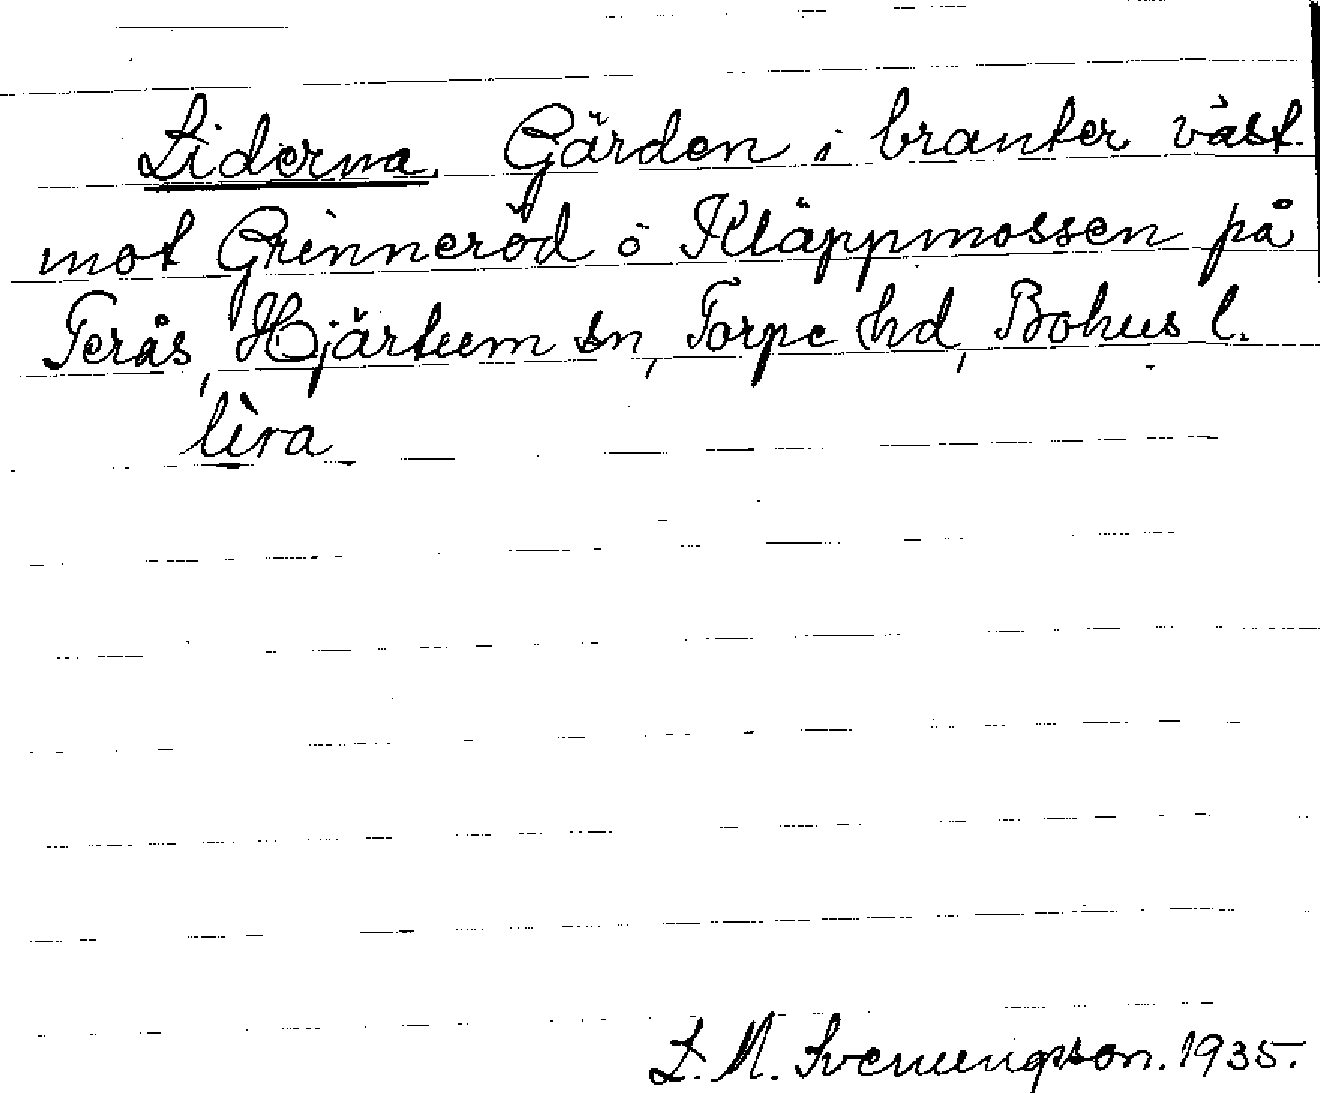 Liderna. Gärden i branter väst.
mot Grinneröd ö Kläppmossen på
Terås, Hjärtum sn, Torpe hd, Bohus l.
lìra
L. M. Svenungsson. 1935.